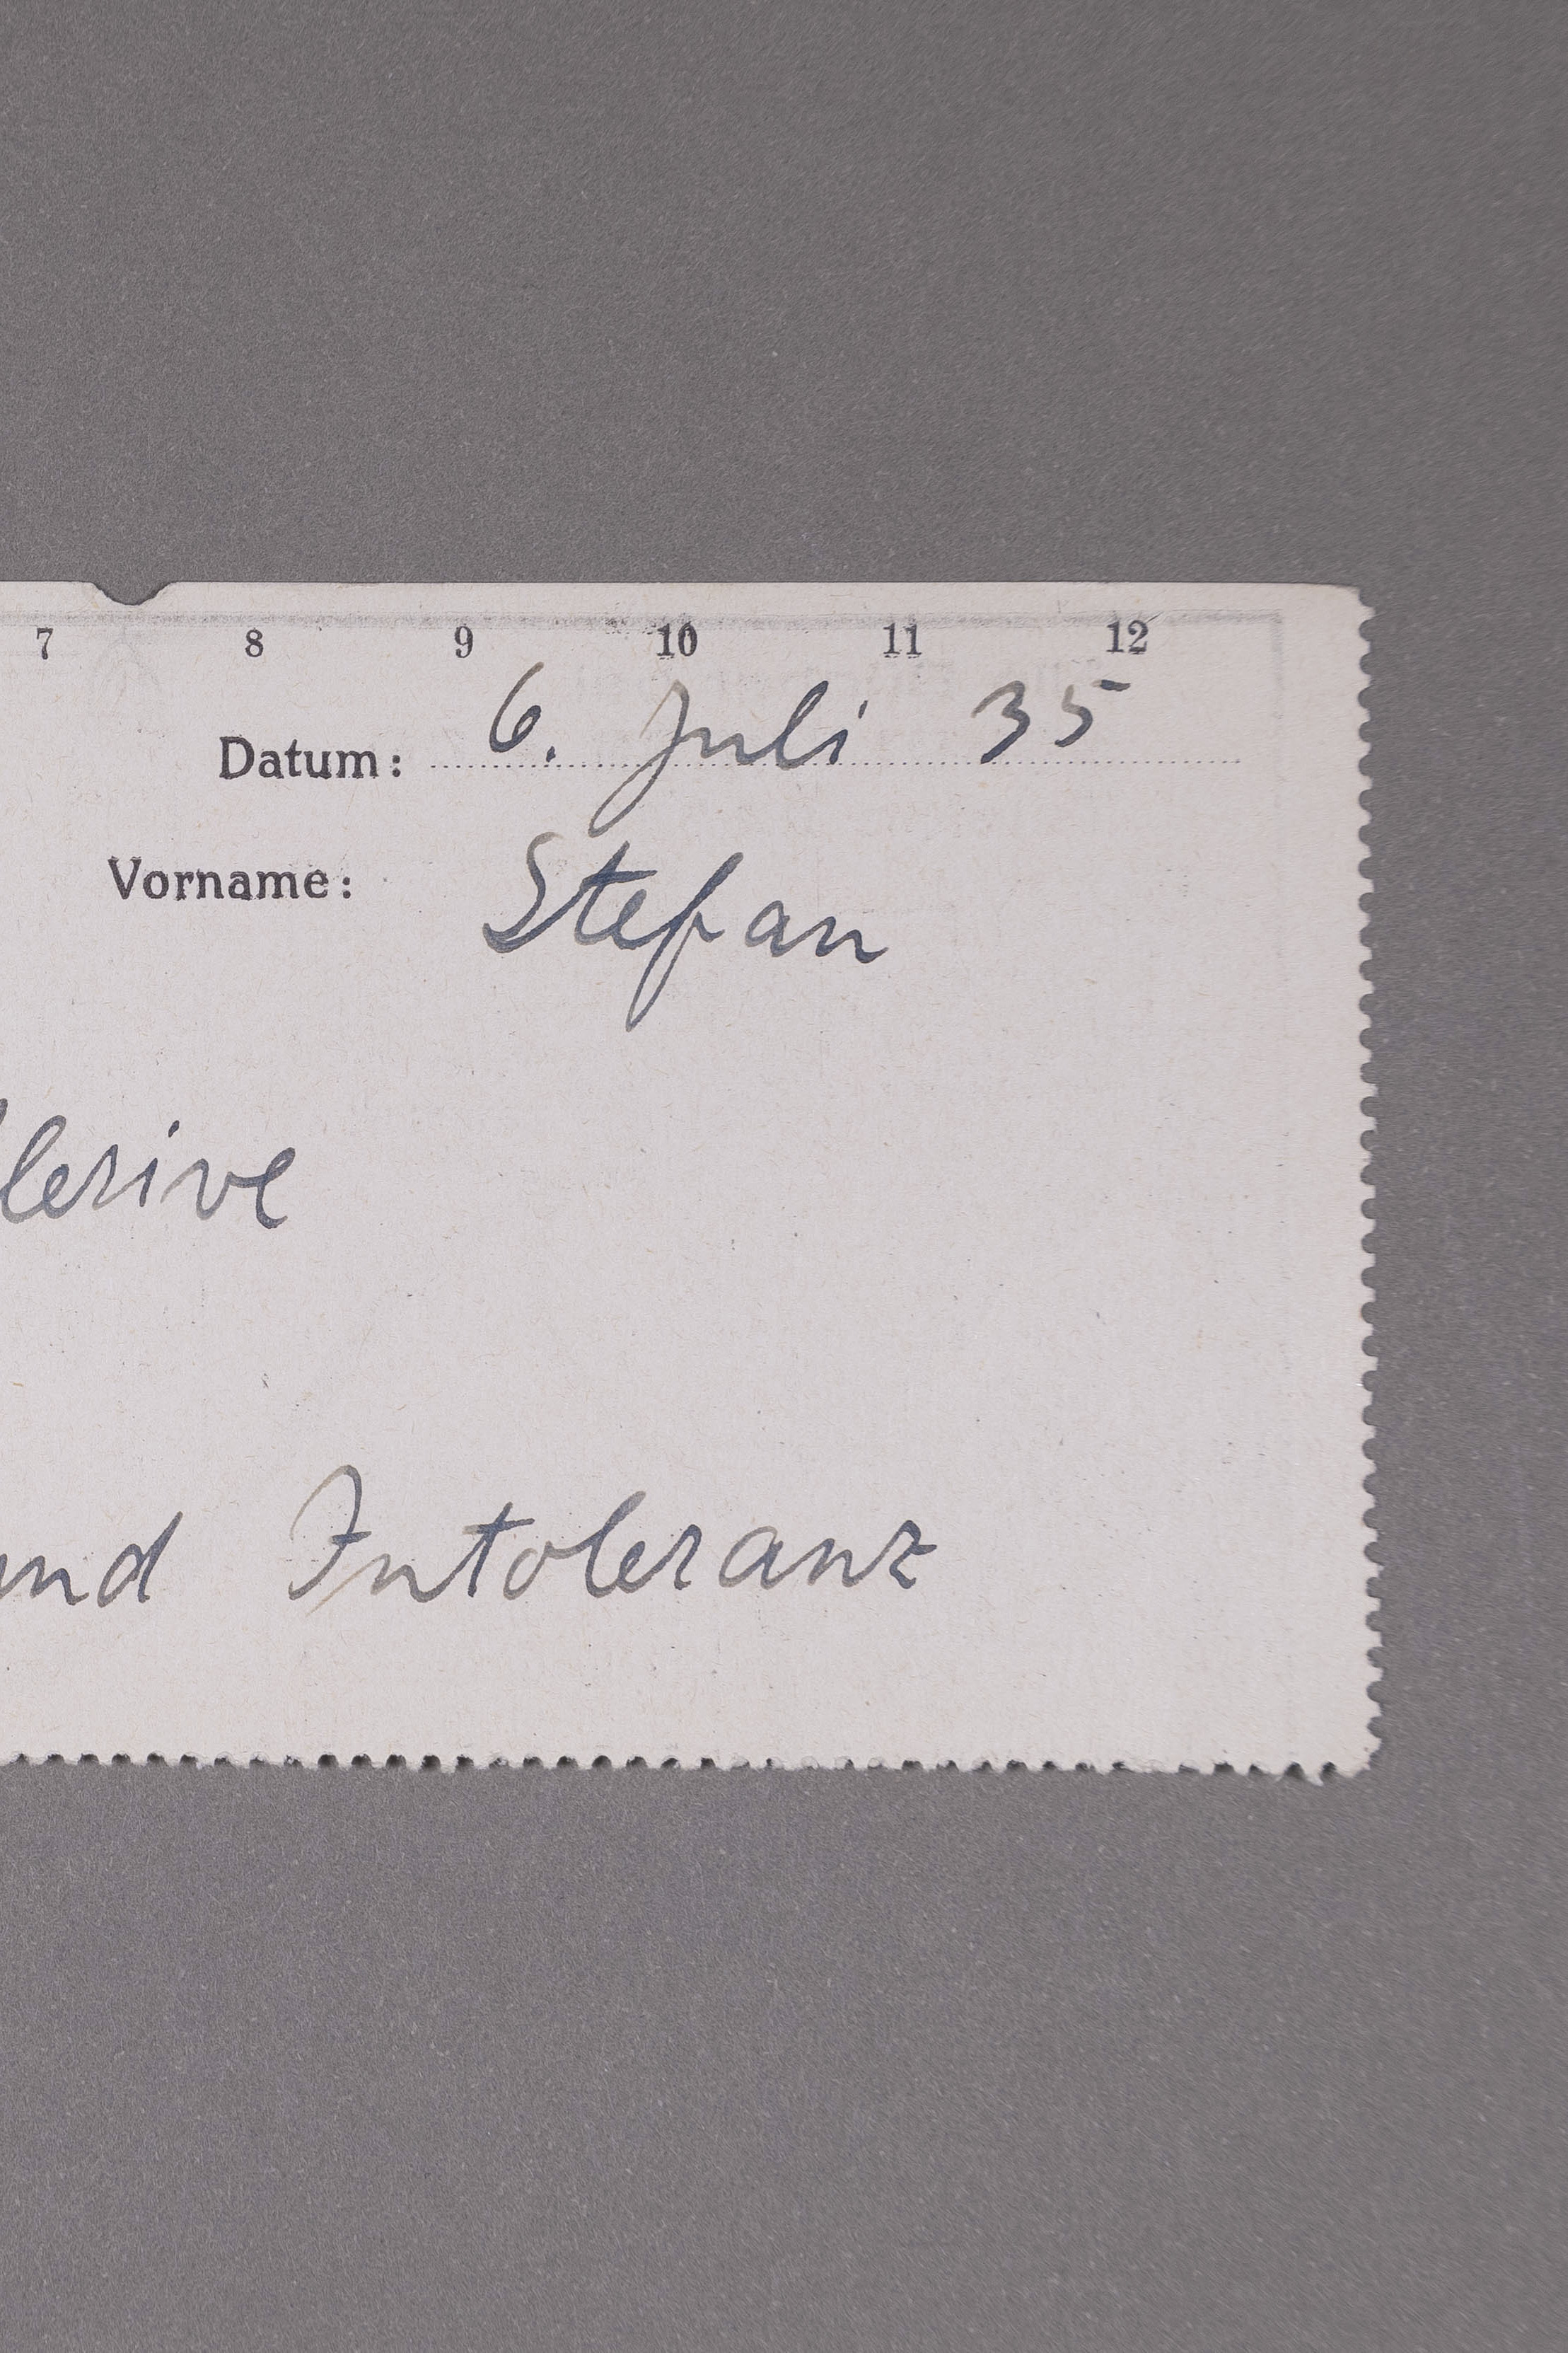 7 8 9 10 11 12
Datum: 6. Juli 35
Vorname: Stefan
und Intoleranz